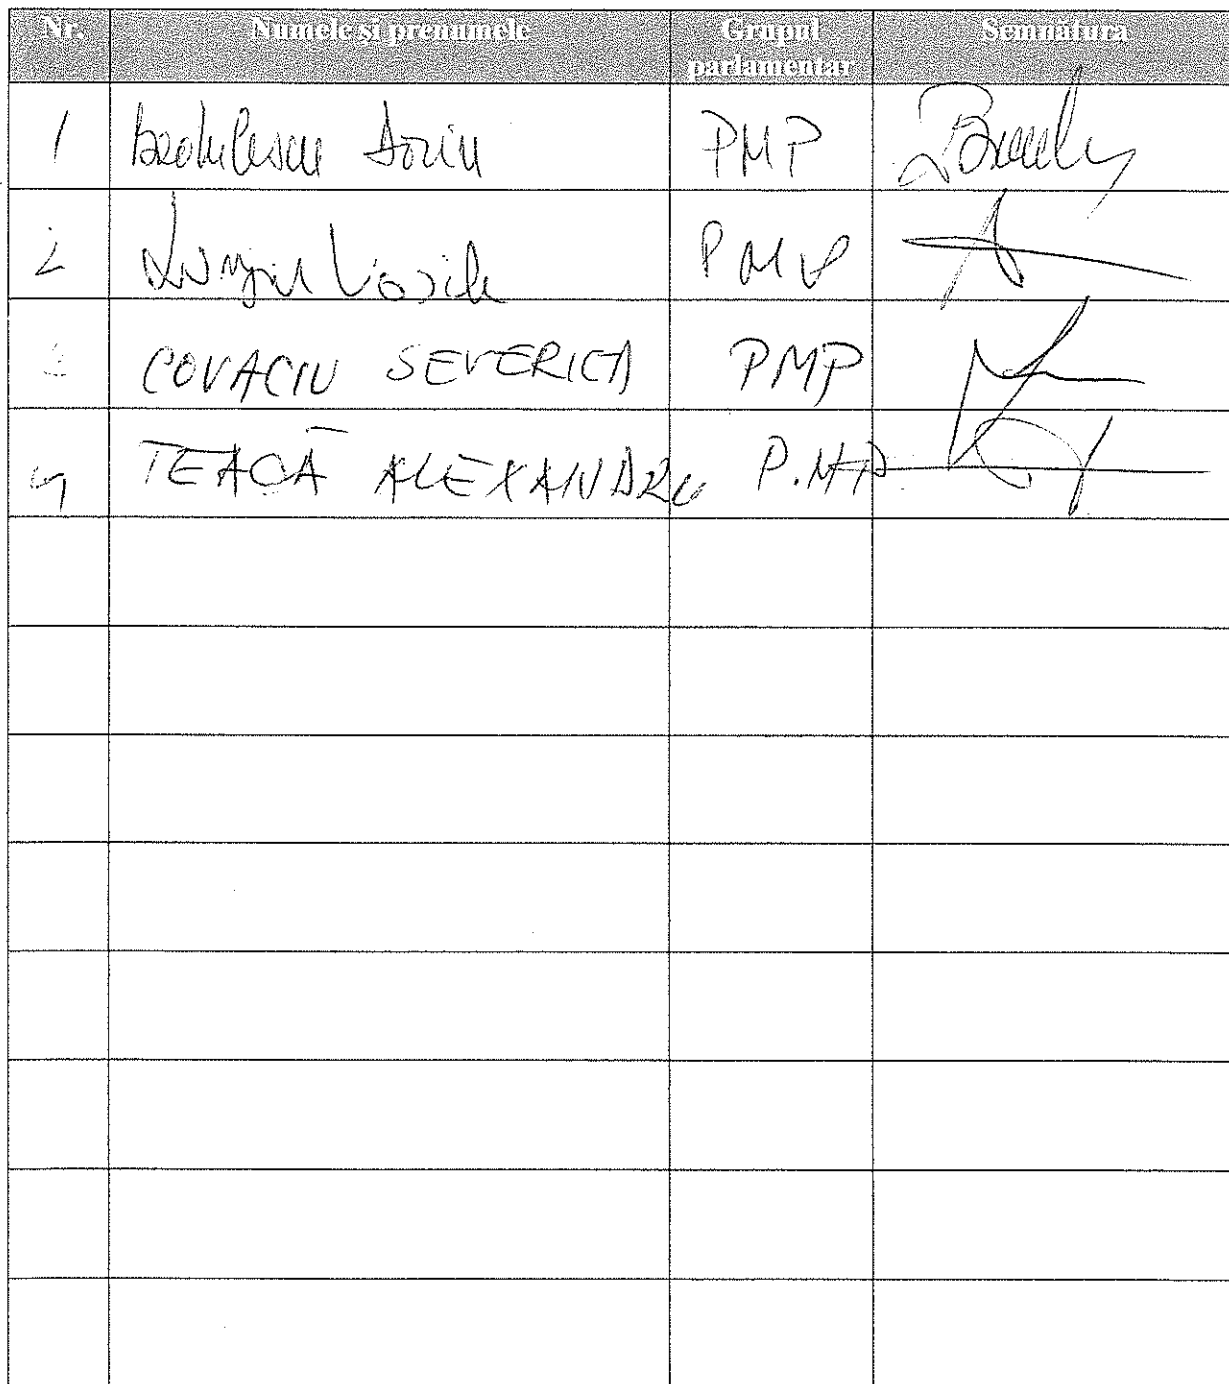 Nr. Numele si prenumele Grupul parlamentar Semnătura
1 Dorin PMP
2 Lungu Vasile PMP
3 COVACIU SEVERICA PMP
4 TEACĂ ALEXANDRU P.M.P.